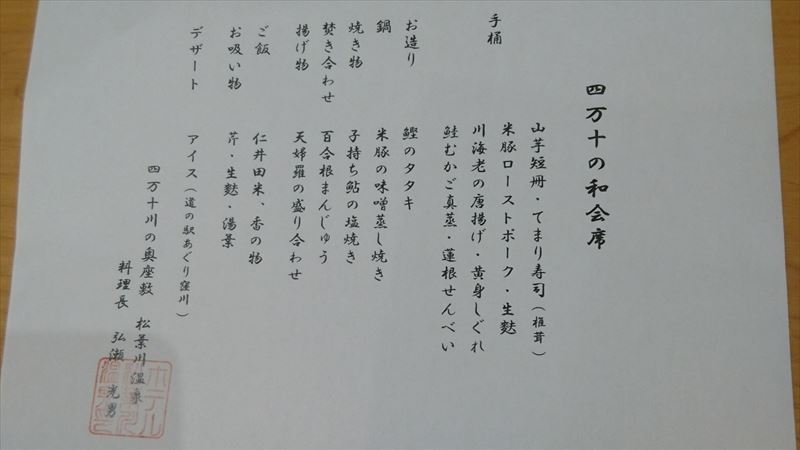 四万十の和会席
手桶
山芋短冊・てまり寿司（椎茸）
米豚ローストポーク・生麩
川海老の唐揚げ・黄身しぐれ
鮭むかご真蒸・蓮根せんべい
お造り 鰹のタタキ
鍋 米豚の味噌蒸し焼き
焼き物 子持ち鮎の塩焼き
焚き合わせ 百合根まんじゅう
揚げ物 天婦羅の盛り合わせ
ご飯 仁井田米、香の物
お吸い物 芹・生麩・湯葉
デザート アイス（道の駅あぐり窪川）
四万十川の奥座敷 松葉川温泉
料理長 弘瀬 光男
ホテル